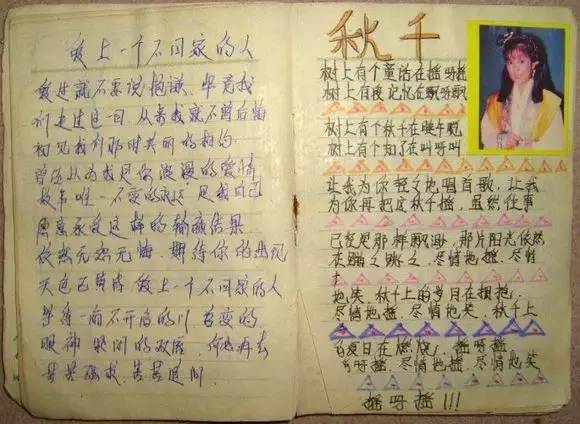 爱上一个不回家的人
爱过就不要说抱歉 毕竟我
们走过这一回 从来我就不曾后悔
初见我们那时共同的相约
曾经以为我是你浪漫的爱情
故事唯一不变的永远 是我自己
愿意承受这样的输赢结果
依然无怨无悔 期待你的出现
天色已黄昏 爱上一个不回家的人
等待一扇不开启的门 善变的
眼神 紧闭的双唇 何必再去
苦苦强求 苦苦追问
秋千
树上有个童话在摇呀摇
树上有段记忆在飘呀飘
树上有个秋千在
树上有个知了在叫呀叫
让我为你轻轻地唱首歌,让我
为你再把这秋千摇,虽然往事
已经是那样飘渺,那片阳光依然
在跳之跳之.尽情地摇.尽情
地笑.秋千上的岁月在拥抱.
尽情地摇.尽情地笑.秋千上
的夏日在燃烧,摇呀摇
呀摇.尽情地摇.尽情地笑
摇呀摇!!!